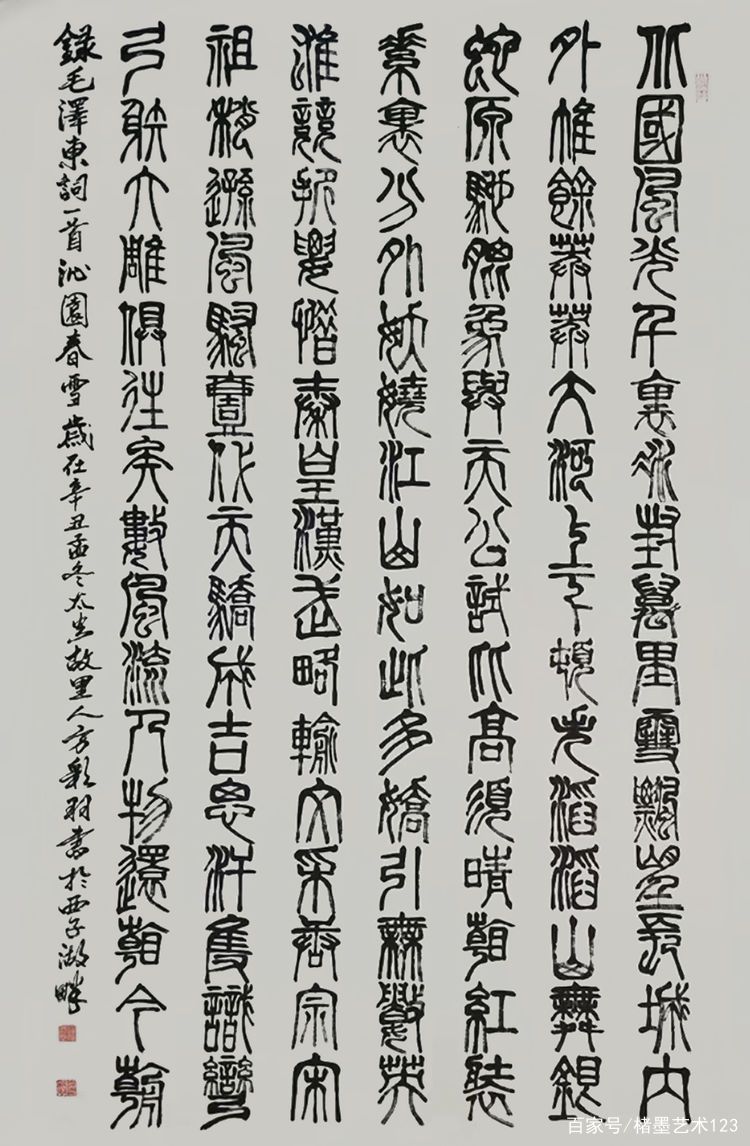 北國風光千裏冰封萬里雪飄望長城內
外惟餘莽莽大河上下頓失滔滔山舞銀
蛇原馳臘象與天公試比高須晴看紅裝
素裹分外妖嬈江山如此多嬌引無數英
雄競折腰惜秦皇漢武略輸文采唐宗宋
祖稍遜風騷壹代天驕成吉思汗隻識彎
弓射大雕俱往矣數風流人物還看今朝
錄毛澤東詞一首沁園春雪歲在辛丑孟冬太炎故里人方彩羽書於西子湖畔
百家号/楮墨艺术123